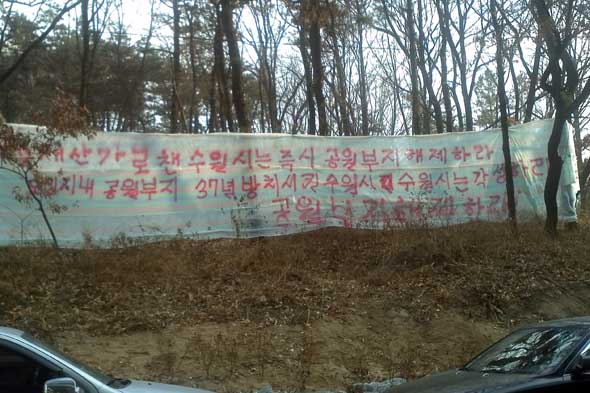 재산 가로챈 수원시는 즉시 공원부지 해제하라
공원부지 37년 방치시킨 수원시 수원시는 각성하라
공원부지해제하라